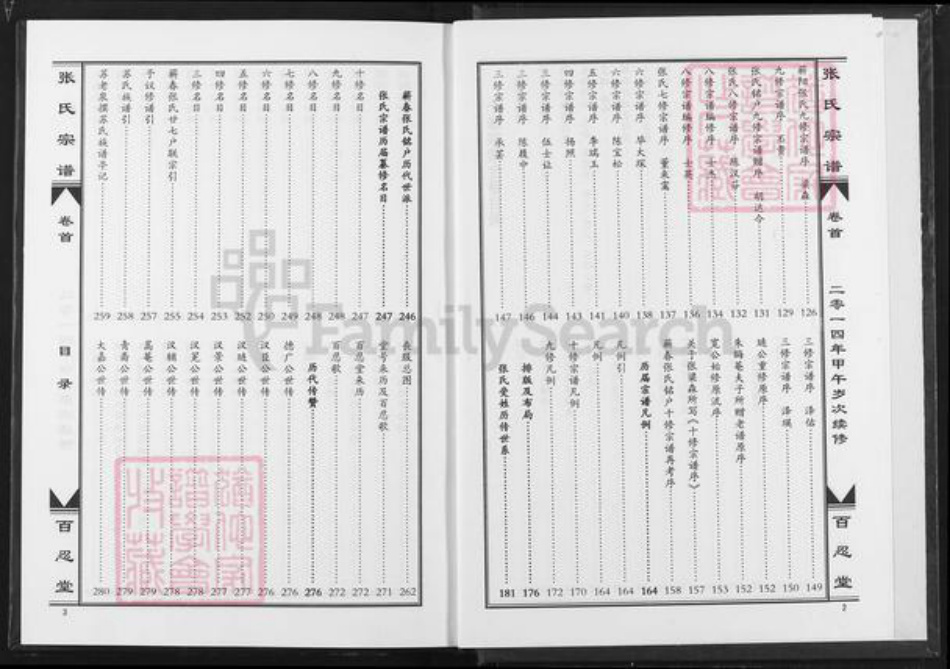 张氏宗谱
卷首
二零一四年甲午岁次续修
百忍堂
2
蕲阳张氏九修宗谱序 梁森 126
九修宗谱序 129
张氏铭户九修宗谱赠序 胡达今 131
张氏八修宗谱序 陈汉芬 132
八修宗谱编修序 士杰 134
八修宗谱编修序 士英 136
张氏七修宗谱序 董来鸾 137
六修宗谱序 毕大琛 138
六修宗谱序 陈宝松 140
五修宗谱序 李瑞玉 141
四修宗谱序 杨照 143
三修宗谱序 伍士让 144
三修宗谱序 陈履中 146
三修宗谱序 承芸 147
三修宗谱序 泽佑 149
三修宗谱序 泽瑛 150
琏公重修原序 152
朱晦菴夫子所赠老谱原序 152
宽公始修原流序 153
关于张梁森所写《十修宗谱序》 157
蕲春张氏铭户十修宗谱再考序 158
历届宗谱凡例 164
凡例引 164
凡例 164
十修宗谱凡例 170
九修凡例 172
排版及布局 176
张氏受姓历传世系 181
张氏宗谱
卷首
目录
百忍堂
3
蕲春张氏铭户历代世派 246
张氏宗谱历届纂修名目 247
十修名目 247
九修名目 248
八修名目 248
七修名目 249
六修名目 250
五修名目 252
四修名目 253
三修名目 254
蕲春张氏廿七户联宗引 255
予议修谱引 257
苏氏族谱引 258
苏老泉撰苏氏族谱亭记 259
丧服总图 262
堂号来历及百忍歌 271
百忍堂来历 272
百忍歌 272
历代传赞 276
德广公世传 276
汉臣公世传 276
汉琏公世传 277
汉景公世传 277
汉冕公世传 278
汉辅公世传 278
嵩菴公世传 279
青斋公世传 279
大嘉公世传 280
FamilySearch